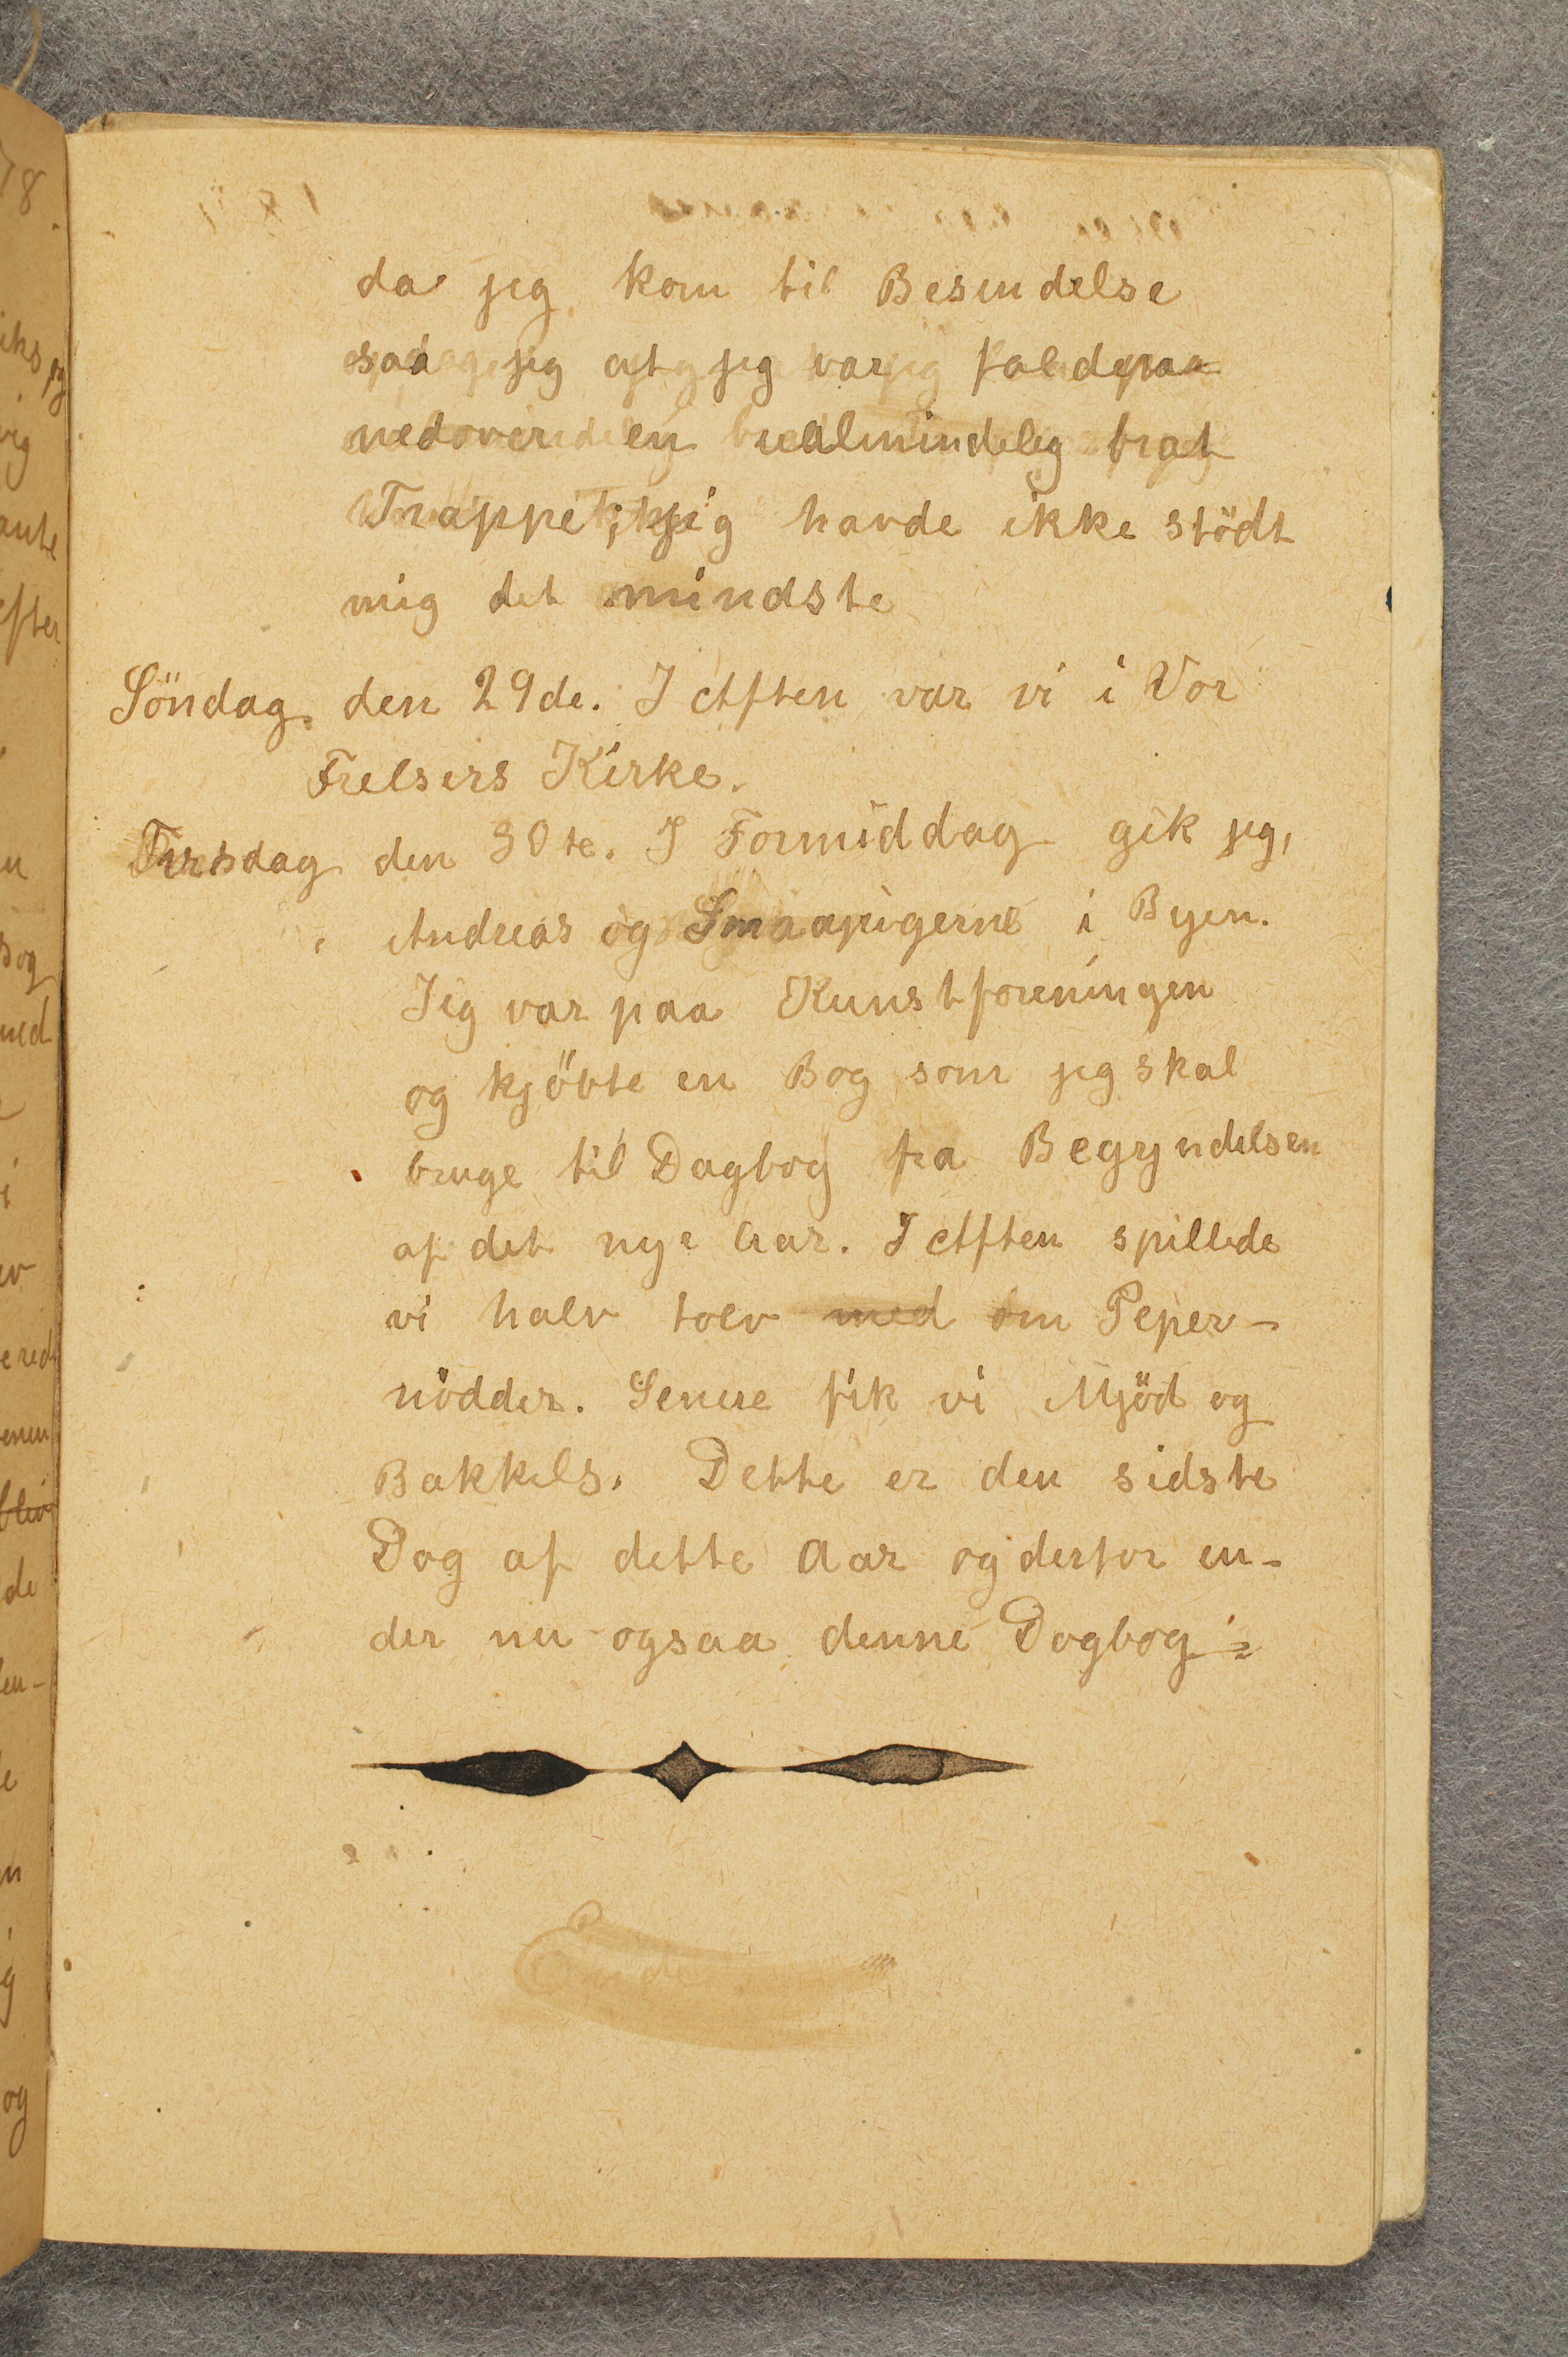 da jeg kom til Besindelse
saa jeg at jeg var falden
nedover en ualmindelig brat
Trappe; jeg havde ikke stödt
mig det mindste
Söndag den 29de. I Aften var vi i Vor
Frelsers Kirke.
Tirsdag den 30te. I Formiddag gik jeg,
Andreas og Smaapigerne i Byen.
Jeg var paa Kunstforeningen
og kjöbte en Bog som jeg skal
bruge til Dagbog fra Begyndelsen
af det nye Aar. I Aften spillede
vi halv tolv med om Peper-
nödder. Senere fik vi Mjöd og
Bakkels. Dette er den sidste
Dag af dette Aar og derfor en-
der nu ogsaa denne Dagbog
Ende